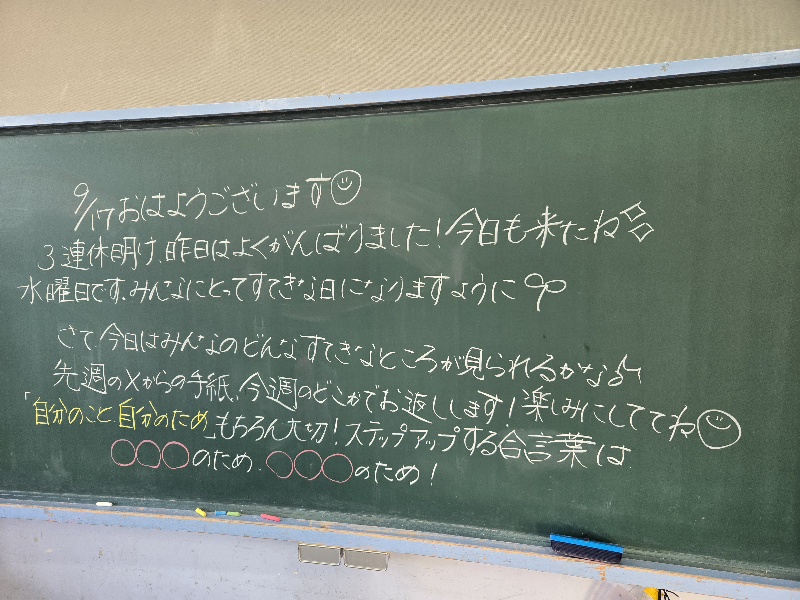 9/17おはようございます
3連休明け、昨日はよくがんばりました!今日も来たね
水曜日です。みんなにとってすてきな日になりますように
さて、今日はみんなのどんなすてきなところが見られるかな♪
先週のXからの手紙、今週のどこかでお返しします!楽しみにしててね
「自分のこと、自分のため」もちろん大切!ステップアップする合言葉は
○○○のため、○○○のため!